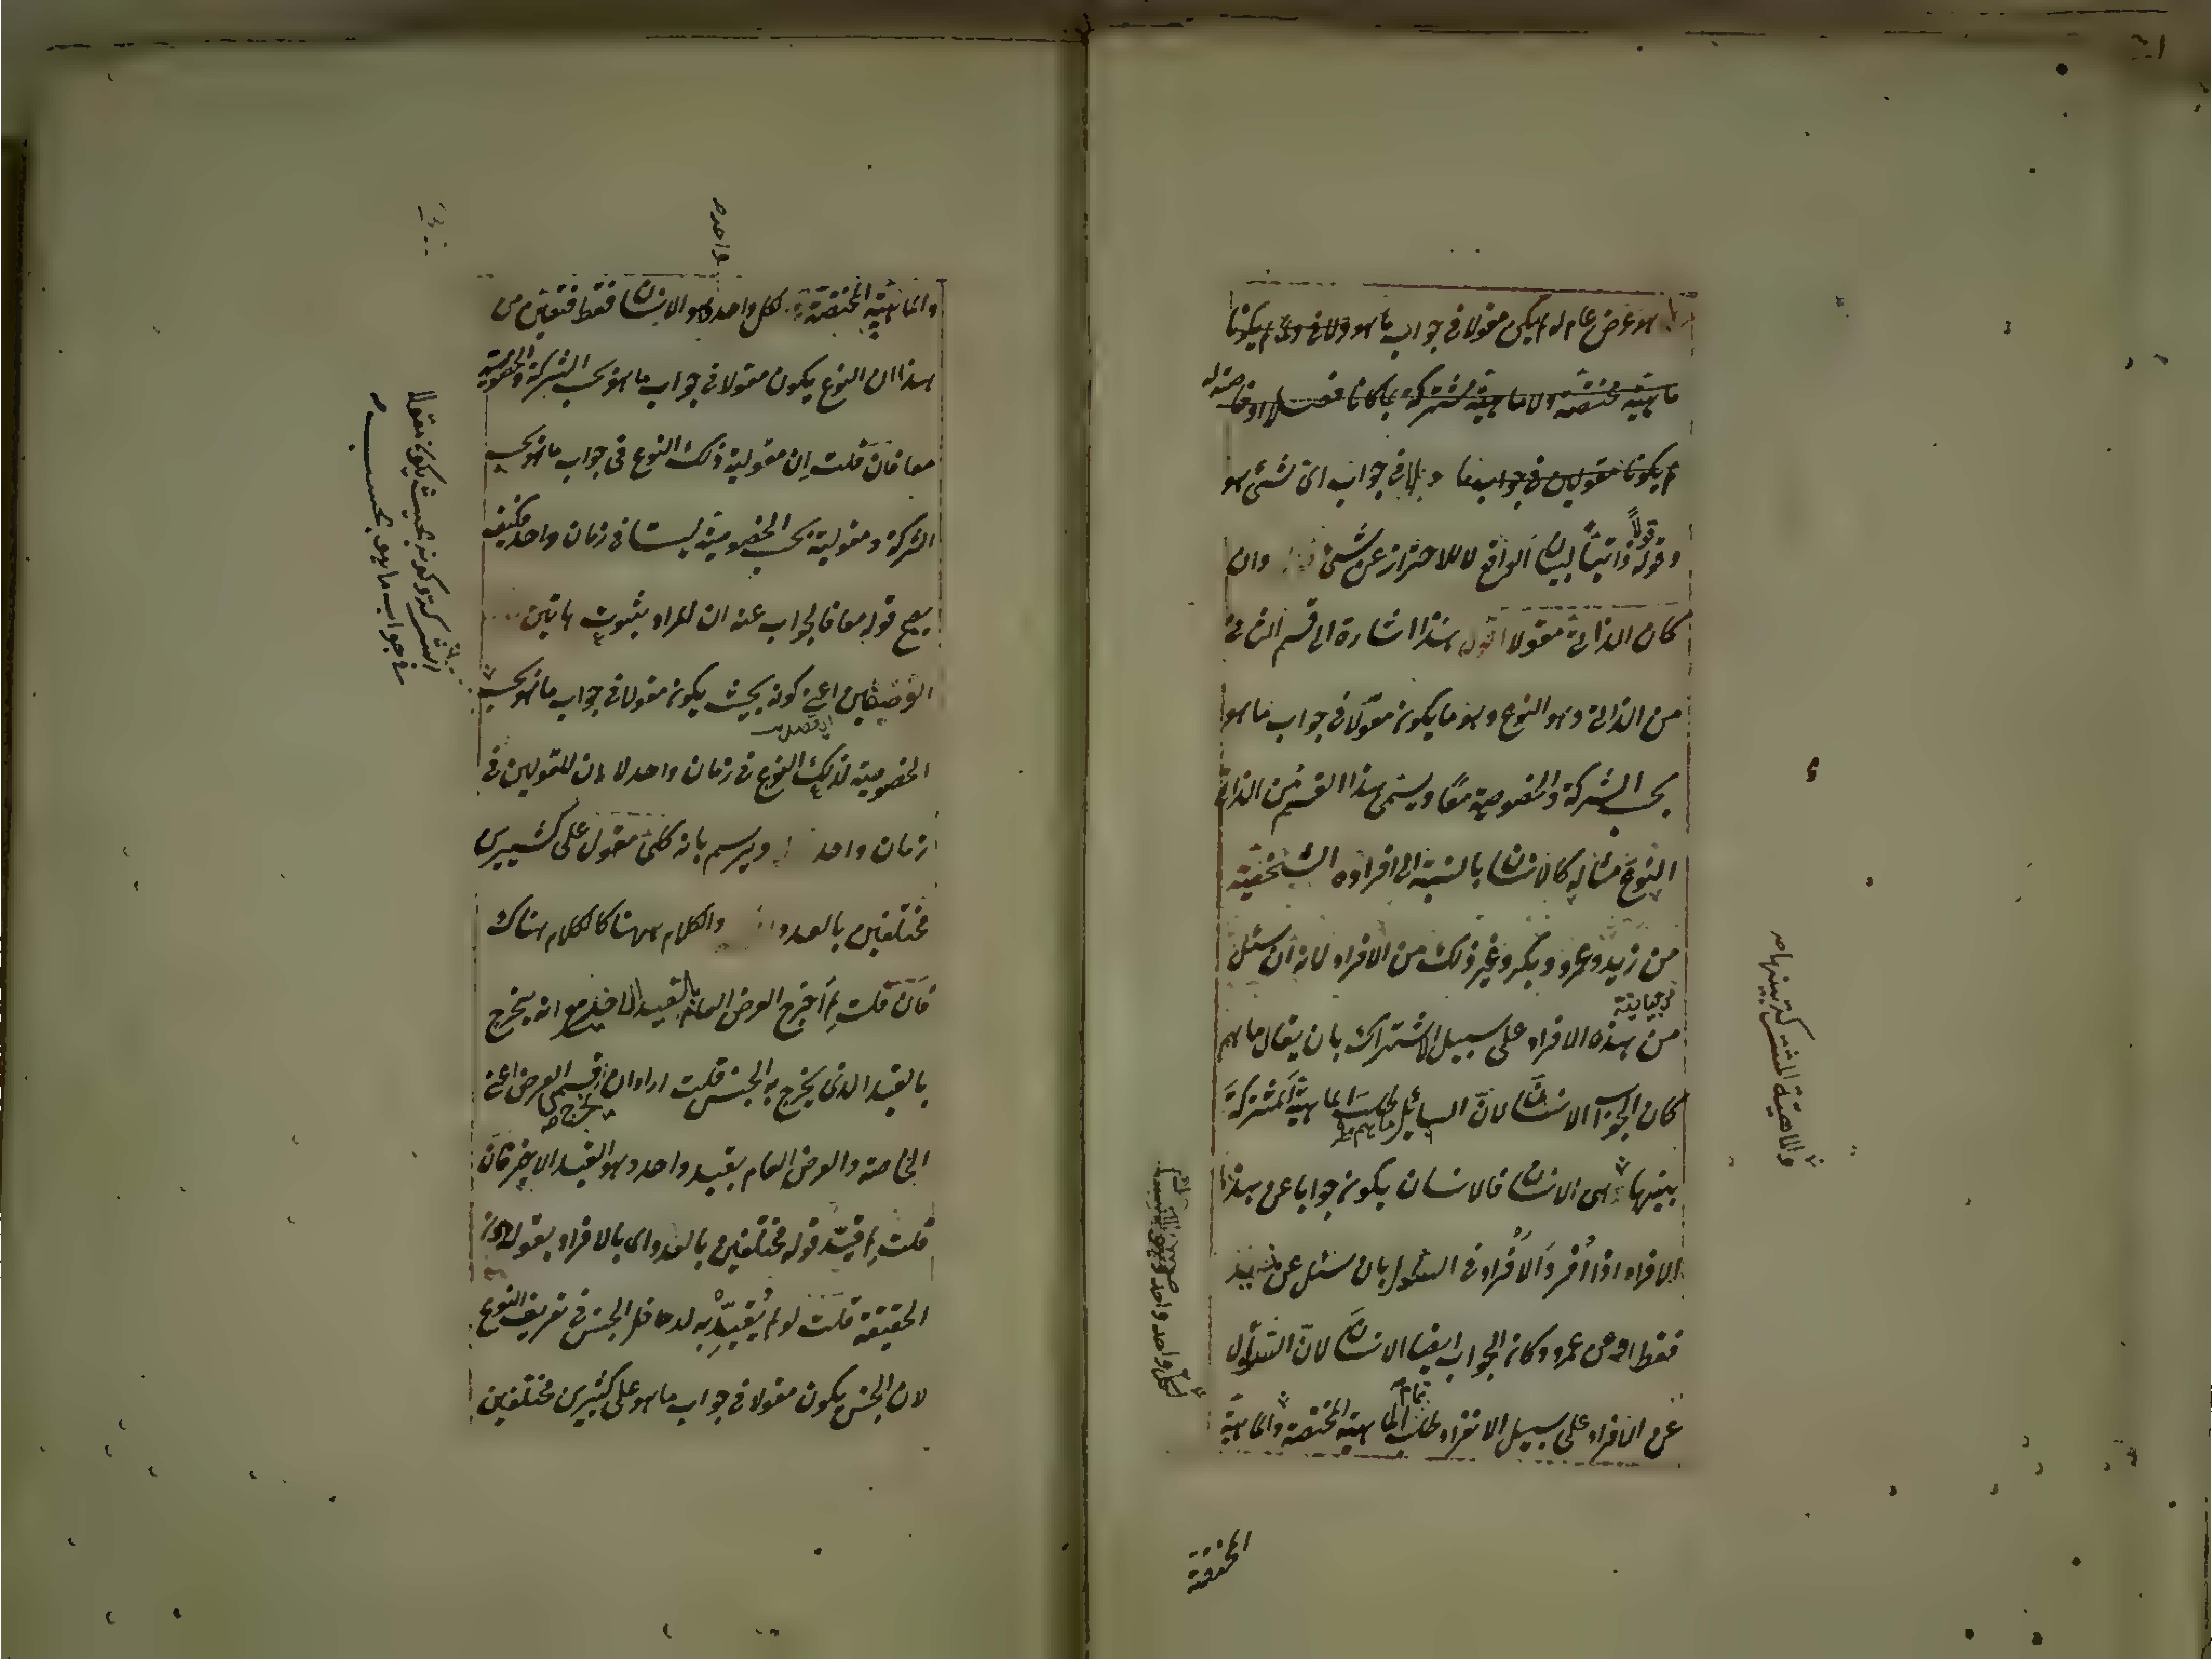 هو عرض عام له لم يكن مقولا في جواب ما هو ولا في لم يكونا
ماهية مختصة ولا ماهية مشتركة بل كانا فصلا او خاصة له
لم يكونا مقولين في جواب ما و بل في جواب اى شئ هو
وقوله قولا ذاتيا لبيان الواقع لا للاحتراز عن شئ وان
كان الذاتى مقولا اقول هذا اشارة الى قسم الثانى
من الذاتى وهو النوع وهو ما يكون مقولا فى جواب ما هو
بحسب الشركة والخصوصية معا ويسمى هذا القسم من الذاتى
النوع مثاله كالانسان بالنسبة الى افراده الشخصية
من زيد وعمرو وبكر وغير ذلك من الافراد لانه ان سئل
من هذه الافراد على سبيل الاشتراك بان يقال ما هم
كان الجواب الانسان لان السائل طلب الماهية المشتركة
بينها وهى الانسان فالانسان يكون جوابا عن هذا
الافراد اذا افرد الافراد فى السئول بان سئل عن زيد
فقط او عن عمرو وكان الجواب ايضا الانسان لان السئول
عن الافراد على سبيل الانفراد طلب تمام الماهية المختصة والماهية
والماهية المشتركة بينها صح
المختصة
واحد صح
والماهية المختصة لكل واحد هو الانسان فقط فتعين من
هذا ان النوع يكون مقولا فى جواب ما هو بحسب الشركة والخصوصية
معا فان قلت ان مقولية ذلك النوع فى جواب ما هو بحسب
الشركة ومقولية بحسب الخصوصية ليستا فى زمان واحد فكيف
يصح قوله معا فالجواب عنه ان المراد بثبوت هاتين
اعنى كونه بحيث يكون مقولا فى جواب ما هو بحسب
الخصوصية لذلك النوع فى زمان واحد لا ان المقولين فى
زمان واحد ويرسم بانه كلى مقول على كثيرين
مختلفين بالعدد والكلام ههنا كالكلام هناك
فان قلت لم اخرج العرض العام بالقيد الاخير مع انه يخرج
بالقيد الذى يخرج به الجنس قلت اراد ان يخرج قسمى العرض اعنى
الخاصة والعرض العام بقيد واحد وهو القيد الاخير فان
قلت لم قيد قوله مختلفين بالعدد اى بالافراد بقوله دون
الحقيقة قلت لو لم يقيد به لدخل الجنس فى تعريف النوع
لان الجنس يكون مقولا فى جواب ما هو على كثيرين مختلفين
الشركة وكونه بحيث يكون مقولا
فى جواب ما هو بحسب